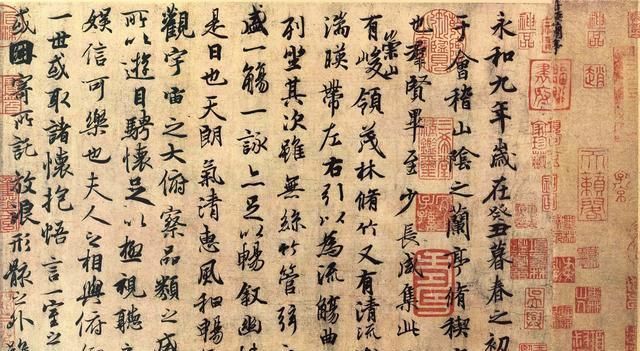 神品
天籟閣
永和九年歲在癸丑暮春之初
于會稽山陰之蘭亭脩稧
也羣賢畢至少長咸集此
有崇山峻領茂林脩竹又有清流
湍暎帶左右引以為流觴曲
列坐其次雖無絲竹管弦
盛一觴一詠亦足以暢叙幽
是日也天朗氣清惠風和暢
觀宇宙之大俯察品類之盛
所以遊目騁懷足以極視聽
娛信可樂也夫人之相與俯
一世或取諸懷抱悟言一室之
或因寄所託放浪形骸之外雖